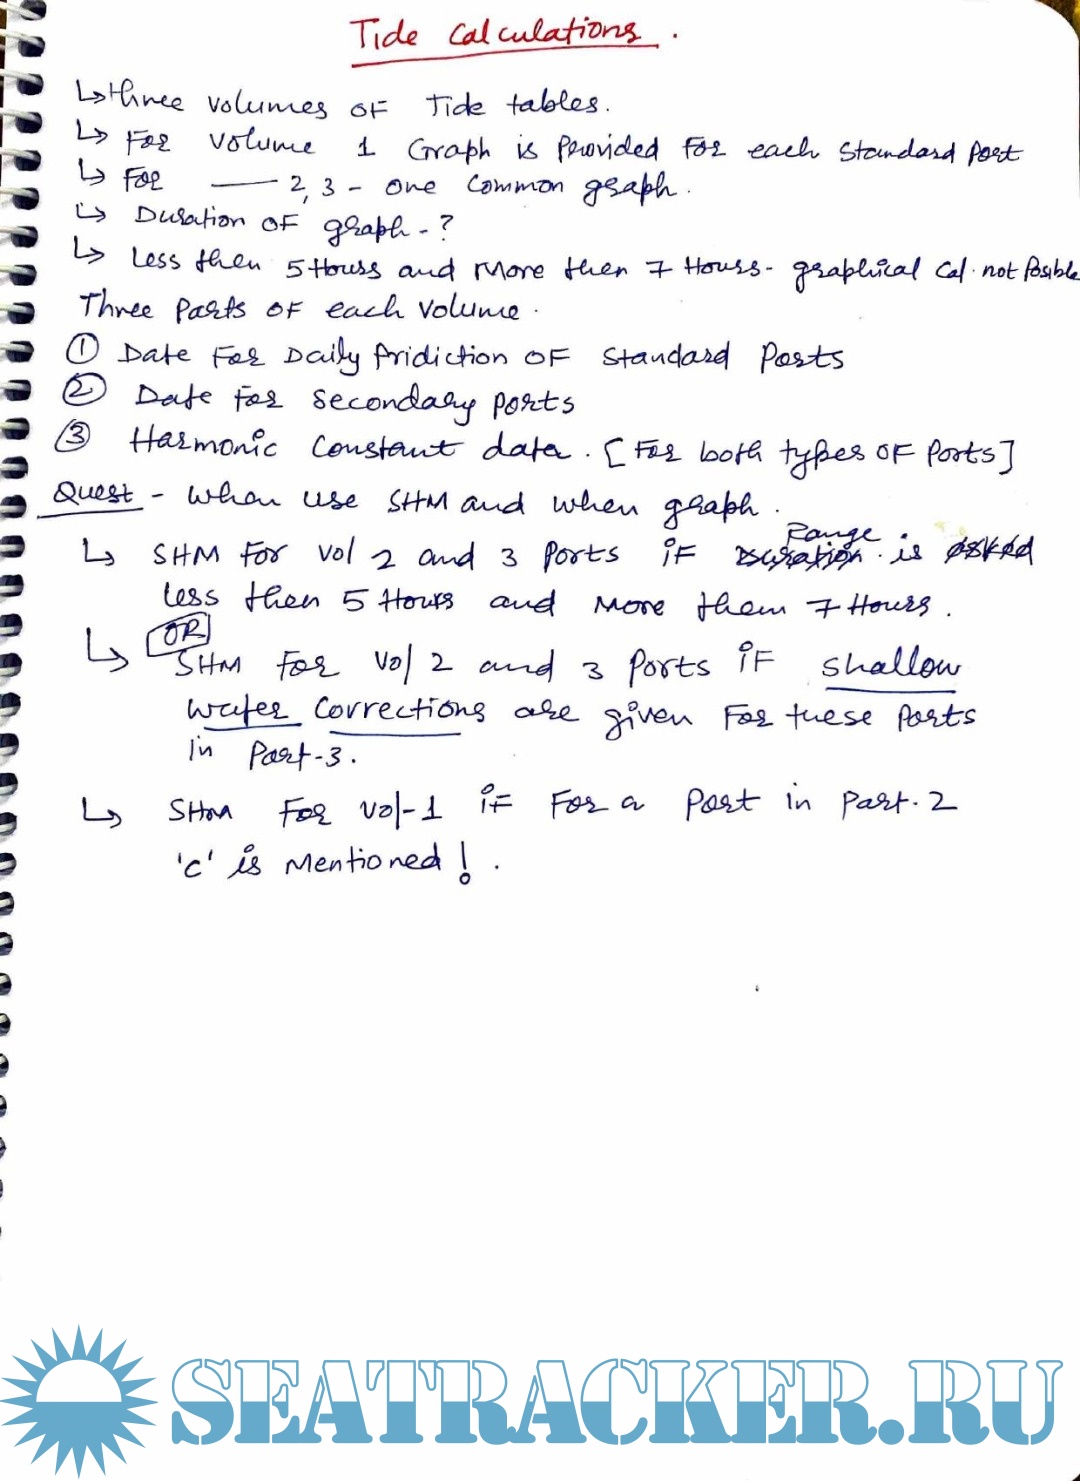 Tide Calculations.
↳ three volumes of Tide tables.
↳ For volume 1 Graph is Provided for each Standard Port
↳ For —— 2, 3 - one common graph.
↳ Duration of graph - ?
↳ Less then 5 Hours and More then 7 Hours - graphical Cal. not Posible
Three Parts of each Volume.
① Date For Daily Pridiction of Standard Ports
② Date for Secondary Ports
③ Harmonic Constant data. [For both types of Ports]
Quest - When use SHM and when graph.
↳ SHM for Vol 2 and 3 Ports if Range is
less then 5 Hours and More them 7 Hours.
OR
↳ SHM for Vol 2 and 3 Ports if shallow
water Corrections are given For these Ports
in Part-3.
↳ SHM For Vol-1 if For a Port in Part-2
'C' is Mentioned!.
SEATRACKER.RU